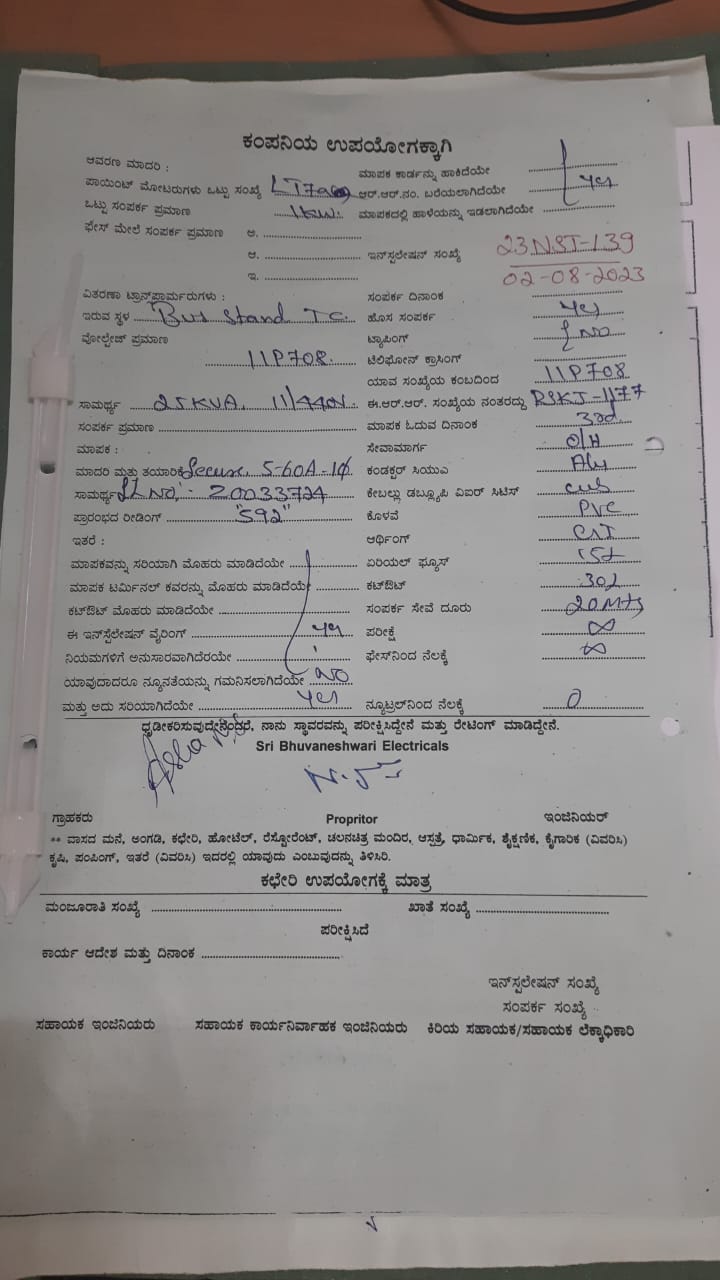 ಕಂಪನಿಯ ಉಪಯೋಗಕ್ಕಾಗಿ
ಆವರಣ ಮಾದರಿ : ಮಾಪಕ ಕಾರ್ಡನ್ನು ಹಾಕಿದೆಯೇ
ಪಾಯಿಂಟ್ ಮೋಟರುಗಳು ಒಟ್ಟು ಸಂಖ್ಯೆ ಆರ್.ಆರ್.ನಂ. ಬರೆಯಲಾಗಿದೆಯೇ yes
ಒಟ್ಟು ಸಂಪರ್ಕ ಪ್ರಮಾಣ 1KW. ಮಾಪಕದಲ್ಲಿ ಹಾಳೆಯನ್ನು ಇಡಲಾಗಿದೆಯೇ
ಫೇಸ್ ಮೇಲೆ ಸಂಪರ್ಕ ಪ್ರಮಾಣ ಅ.
ಆ. ಇನ್‌ಸ್ಟಲೇಷನ್ ಸಂಖ್ಯೆ 23NST-139
ಇ. 02-08-2023
ವಿತರಣಾ ಟ್ರಾನ್ಸ್‌ಫಾರ್ಮರುಗಳು : ಸಂಪರ್ಕ ದಿನಾಂಕ
ಇರುವ ಸ್ಥಳ Bus Stand TC. ಹೊಸ ಸಂಪರ್ಕ yes
ವೋಲ್ಟೇಜ್ ಪ್ರಮಾಣ ಟ್ಯಾಪಿಂಗ್ NO
11P708. ಟೆಲಿಫೋನ್ ಕ್ರಾಸಿಂಗ್
ಯಾವ ಸಂಖ್ಯೆಯ ಕಂಬದಿಂದ 11P708
ಸಾಮರ್ಥ್ಯ 25KVA. 11/440V. ಈ.ಆರ್.ಆರ್. ಸಂಖ್ಯೆಯ ನಂತರದ್ದು RSKJ-1177
ಸಂಪರ್ಕ ಪ್ರಮಾಣ ಮಾಪಕ ಓದುವ ದಿನಾಂಕ 3rd.
ಮಾಪಕ : ಸೇವಾಮಾರ್ಗ O/H
ಮಾದರಿ ಮತ್ತು ತಯಾರಿಕೆ Secure. 5-60A-1ϕ ಕಂಡಕ್ಟರ್ ಸಿಯುಎ Aly
ಸಾಮರ್ಥ್ಯ SL NO,:- 20033724 ಕೇಬಲ್ಲು ಡಬ್ಲ್ಯೂಪಿ ವಿಐರ್ ಸಿಟಿಸ್
ಪ್ರಾರಂಭದ ರೀಡಿಂಗ್ "592" ಕೊಳವೆ PVC
ಇತರೆ : ಆರ್ಥಿಂಗ್
ಮಾಪಕವನ್ನು ಸರಿಯಾಗಿ ಮೊಹರು ಮಾಡಿದೆಯೇ ಏರಿಯಲ್ ಫ್ಯೂಸ್
ಮಾಪಕ ಟರ್ಮಿನಲ್ ಕವರನ್ನು ಮೊಹರು ಮಾಡಿದೆಯೇ ಕಟ್‌ಔಟ್
ಕಟ್‌ಔಟ್ ಮೊಹರು ಮಾಡಿದೆಯೇ ಸಂಪರ್ಕ ಸೇವೆ ದೂರು 20Mts
ಈ ಇನ್‌ಸ್ಟೆಲೇಷನ್ ವೈರಿಂಗ್ yes ಪರೀಕ್ಷೆ ∞
ನಿಯಮಗಳಿಗೆ ಅನುಸಾರವಾಗಿದೆರಯೇ ಫೇಸ್‌ನಿಂದ ನೆಲಕ್ಕೆ ∞
ಯಾವುದಾದರೂ ನ್ಯೂನತೆಯನ್ನು ಗಮನಿಸಲಾಗಿದೆಯೇ NO
ಮತ್ತು ಅದು ಸರಿಯಾಗಿದೆಯೇ yes ನ್ಯೂಟ್ರಲ್‌ನಿಂದ ನೆಲಕ್ಕೆ 0
ಧೃಡೀಕರಿಸುವುದೇನೆಂದರೆ, ನಾನು ಸ್ಥಾವರವನ್ನು ಪರೀಕ್ಷಿಸಿದ್ದೇನೆ ಮತ್ತು ರೇಟಿಂಗ್ ಮಾಡಿದ್ದೇನೆ.
Sri Bhuvaneshwari Electricals
ಗ್ರಾಹಕರು Propritor ಇಂಜಿನಿಯರ್
** ವಾಸದ ಮನೆ, ಅಂಗಡಿ, ಕಛೇರಿ, ಹೋಟೆಲ್, ರೆಸ್ಟೋರೆಂಟ್, ಚಲನಚಿತ್ರ ಮಂದಿರ, ಆಸ್ಪತ್ರೆ, ಧಾರ್ಮಿಕ, ಶೈಕ್ಷಣಿಕ, ಕೈಗಾರಿಕ (ವಿವರಿಸಿ)
ಕೃಷಿ, ಪಂಪಿಂಗ್, ಇತರೆ (ವಿವರಿಸಿ) ಇದರಲ್ಲಿ ಯಾವುದು ಎಂಬುವುದನ್ನು ತಿಳಿಸಿರಿ.
ಕಛೇರಿ ಉಪಯೋಗಕ್ಕೆ ಮಾತ್ರ
ಮಂಜೂರಾತಿ ಸಂಖ್ಯೆ ಖಾತೆ ಸಂಖ್ಯೆ
ಪರೀಕ್ಷಿಸಿದೆ
ಕಾರ್ಯ ಆದೇಶ ಮತ್ತು ದಿನಾಂಕ
ಇನ್‌ಸ್ಟಲೇಷನ್ ಸಂಖ್ಯೆ
ಸಂಪರ್ಕ ಸಂಖ್ಯೆ
ಸಹಾಯಕ ಇಂಜಿನಿಯರು ಸಹಾಯಕ ಕಾರ್ಯನಿರ್ವಾಹಕ ಇಂಜಿನಿಯರು ಕಿರಿಯ ಸಹಾಯಕ/ಸಹಾಯಕ ಲೆಕ್ಕಾಧಿಕಾರಿ